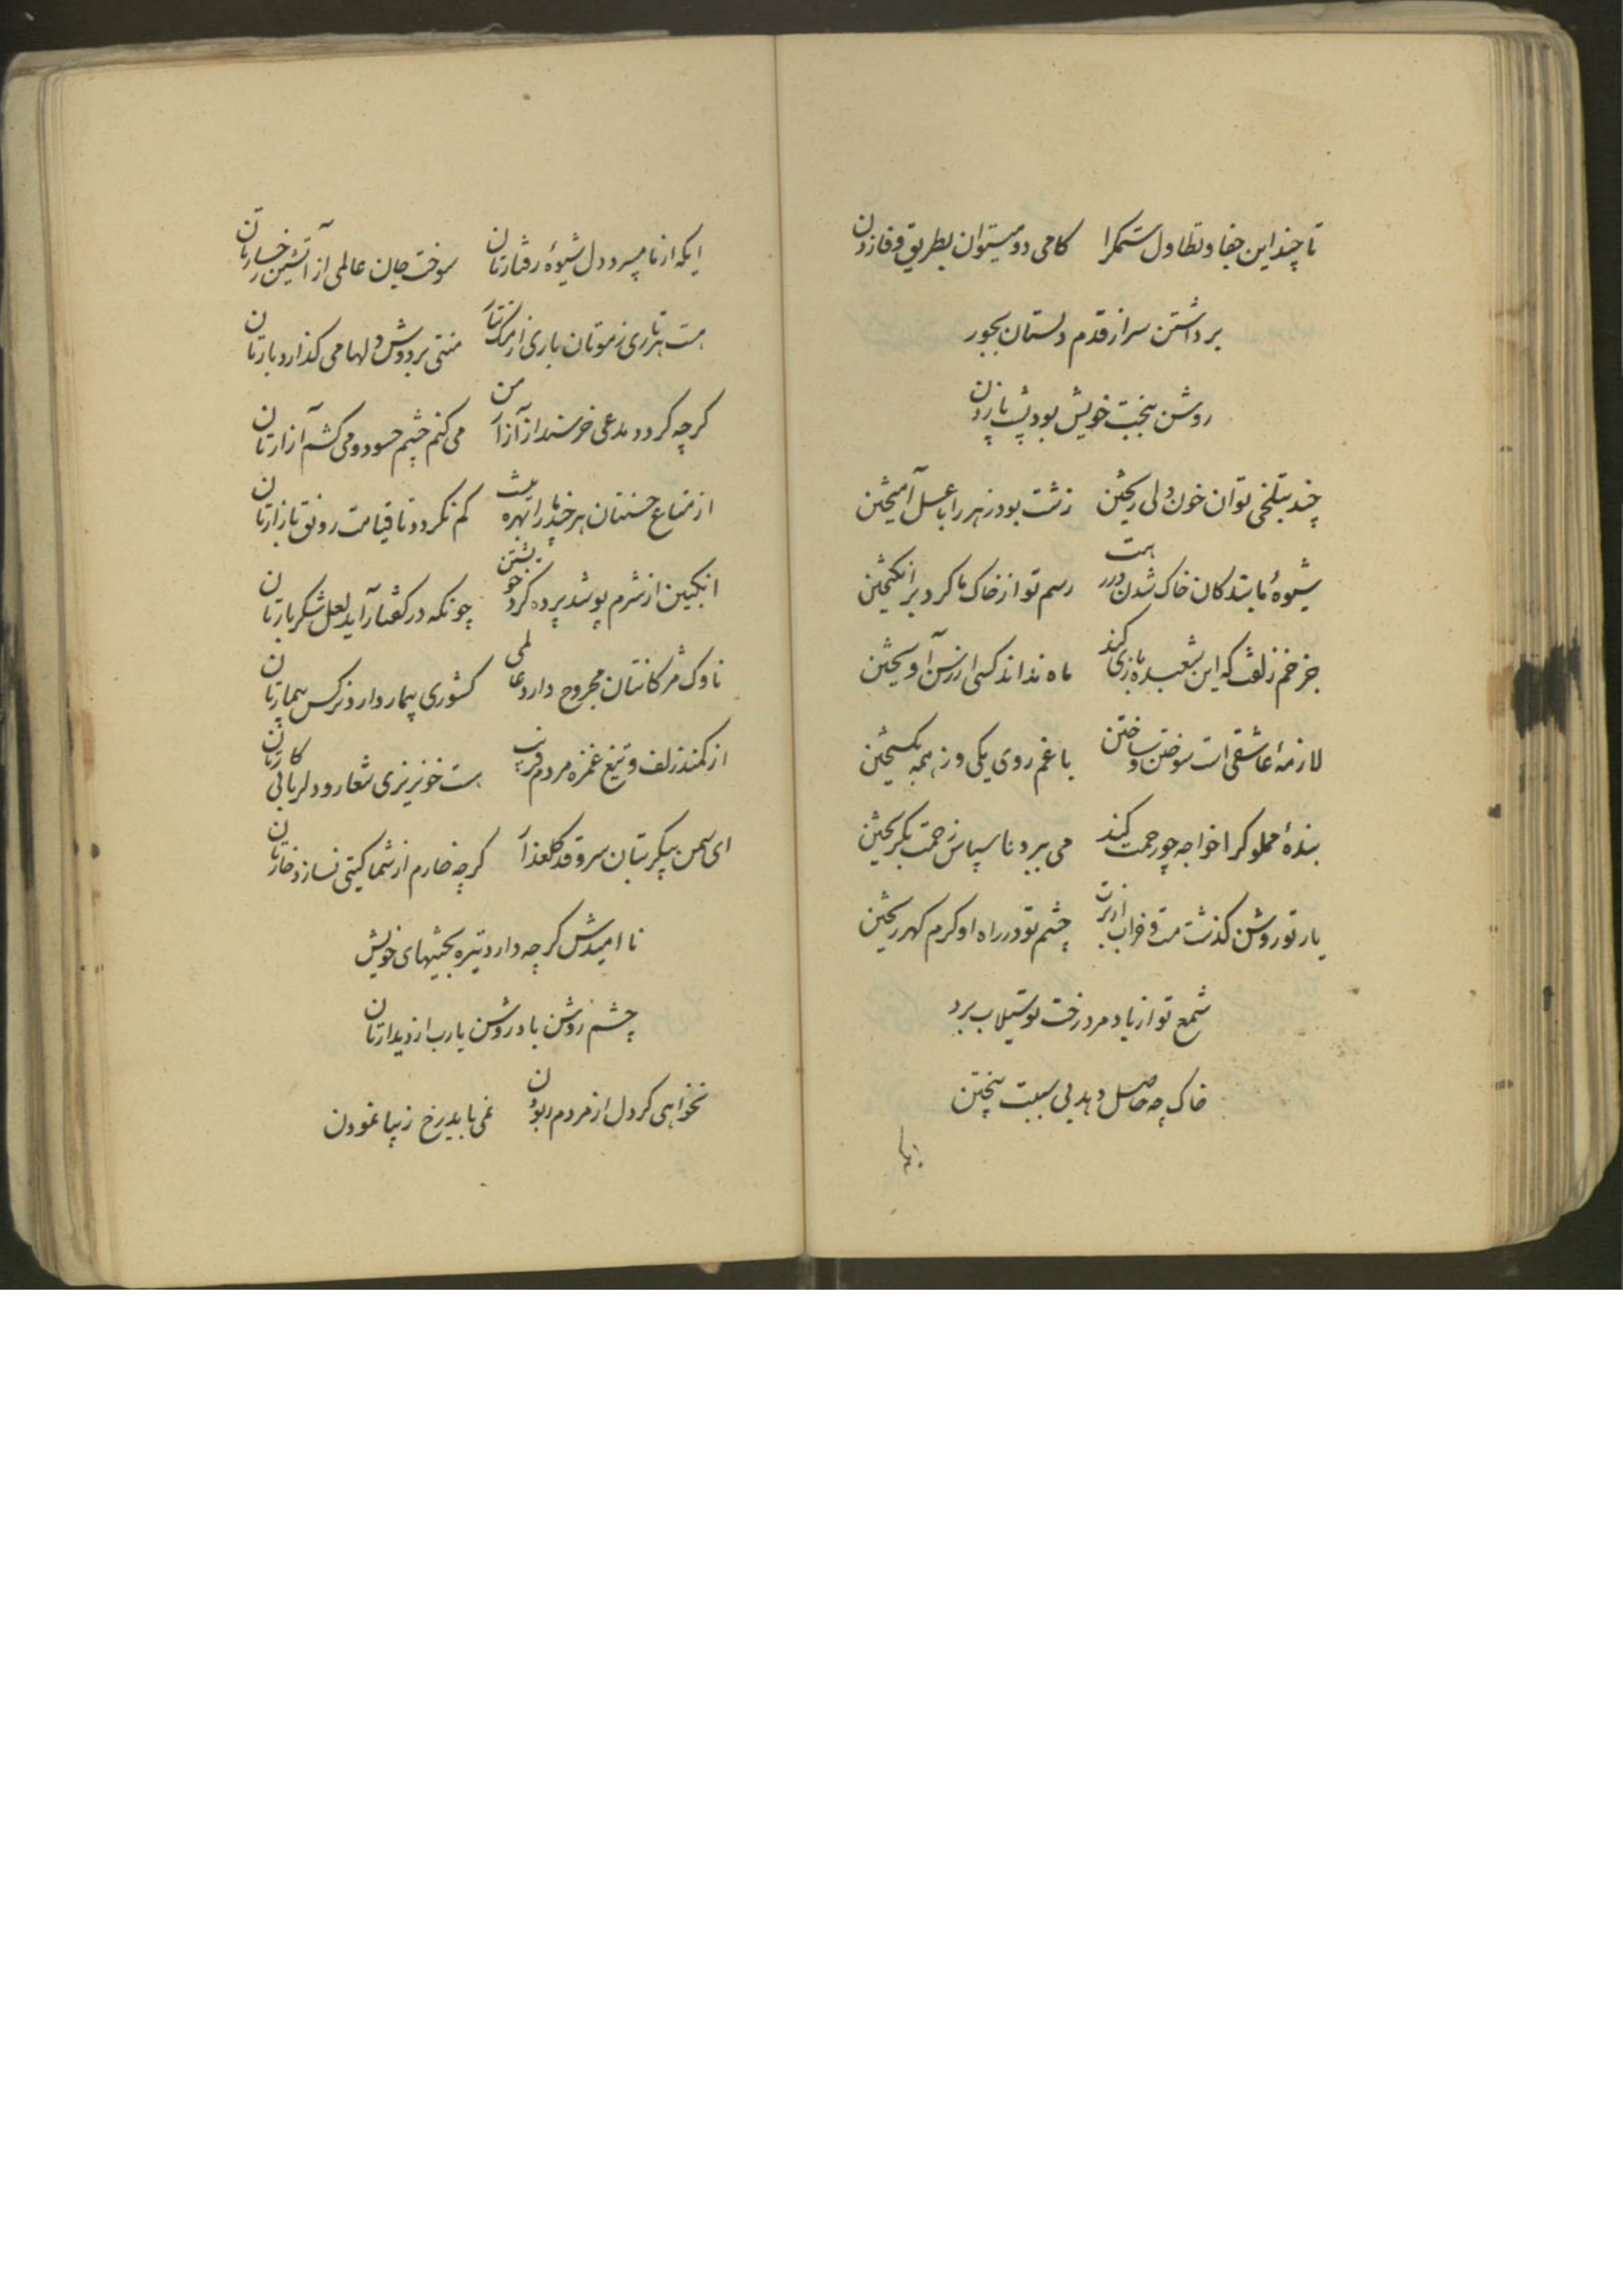 تا چند این جفا و تطاول ستمگرا کامی دو میتوان بطریق وفا زدن
برداشتن سر از قدم دلستان بجور
روشن ببخت خویش بود پشت پا زدن
چند بتلخی توان خون دلی ریختن زشت بود زهر را با عسل آمیختن
شیوهٔ ما بندکان خاک شدن در رهت رسم تو از خاک ما کرد برانکیختن
جز خم زلفت که این شعبده بازی کند ماه نداند کسی از رسن آویختن
لازمهٔ عاشقی است سوختن و ساختن با غم روی یکی وز همه بکسیختن
بندهٔ مملوکرا خواجه چو رحمت کند می برد ناسپاس زحمت بکریختن
یار تو روشن کذشت مست و خراب از برت چشم تو در راه او کرم کهر ریختن
شمع تو از باد مرد رخت تو سیلاب برد
خاک چه حاصل دهد بی سببت بیختن
ایکه از ما میبرد دل شیوهٔ رفتارتان سوخت جان عالمی از آتشین رخسارتان
هست هر تاری ز موتان باری از مشک تتار منتی بر دوش دلها می کذارد بارتان
کرچه کردد مدعی خرسند از آزار من می کنم چشم حسود و می کشم آزارتان
از متاع حسنتان هر چند ما را بهره نیست کم نکردد تا قیامت رونق بازارتان
انکبین از شرم پوشد پرده کرد خویشتن چونکه در کفتار آید لعل شکربارتان
ناوک مژکانتان مجروح دارد عالمی کشوری بیمار دارد نرکس بیمارتان
از کمند زلف و تیغ غمزه مردم فریب هست خونریزی شعار و دلربائی کارتان
ای سمن پیکر بتان سرو قد کلعذار کرچه خارم از شما کیتی نسازد خارتان
نا امیدش کرچه دارد تیره بختیهای خویش
چشم روشن باد روشن یارب از دیدارتان
نخواهی کر دل از مردم ربودن نمی باید رخ زیبا نمودن